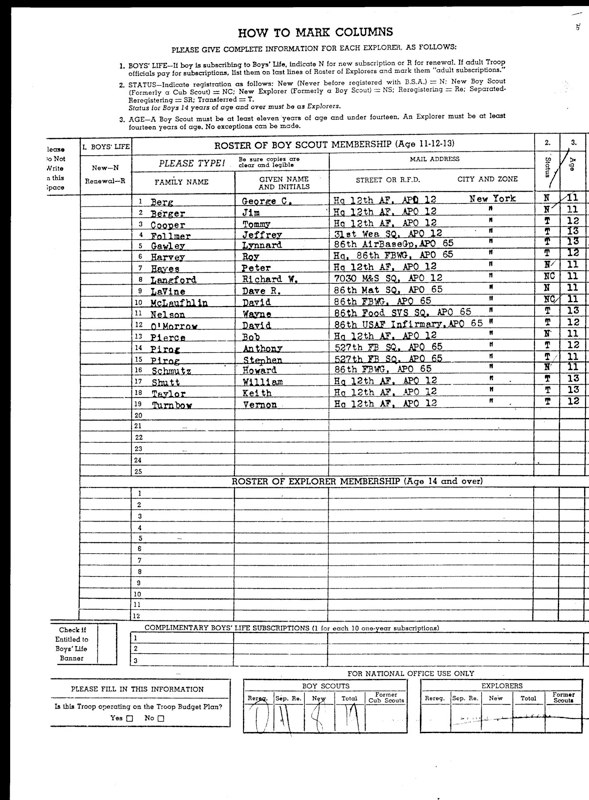 HOW TO MARK COLUMNS
PLEASE GIVE COMPLETE INFORMATION FOR EACH EXPLORER, AS FOLLOWS:
1. BOYS' LIFE—If boy is subscribing to Boys' Life, indicate N for new subscription or R for renewal. If adult Troop
officials pay for subscriptions, list them on last lines of Roster of Explorers and mark them "adult subscriptions."
2. STATUS—Indicate registration as follows: New (Never before registered with B.S.A.) = N: New Boy Scout
(Formerly a Cub Scout) = NC; New Explorer (Formerly a Boy Scout) = NS; Reregistering = Re; Separated-
Reregistering = SR; Transferred = T.
Status for Boys 14 years of age and over must be as Explorers.
3. AGE—A Boy Scout must be at least eleven years of age and under fourteen. An Explorer must be at least
fourteen years of age. No exceptions can be made.
lease
o Not
Write
n this
pace
1. BOYS' LIFE
New—N
Renewal—R
ROSTER OF BOY SCOUT MEMBERSHIP (Age 11-12-13)
2. Status
3. Age
PLEASE TYPE! Be sure copies are clear and legible
MAIL ADDRESS
FAMILY NAME GIVEN NAME AND INITIALS STREET OR R.F.D. CITY AND ZONE
1 Berg George C. Hq 12th AF, APO 12 New York N 11
2 Berger Jim Hq 12th AF, APO 12 " N 11
3 Cooper Tommy Hq 12th AF, APO 12 " T 12
4 Follmer Jeffrey 31st Wea SQ, APO 12 " T 13
5 Gawley Lynnard 86th AirBaseGp, APO 65 " T 13
6 Harvey Roy Hq, 86th FBWG, APO 65 " T 12
7 Hayes Peter Hq 12th AF, APO 12 " N 11
8 Langford Richard W. 7030 M&S SQ, APO 12 " NC 11
9 LaVine Dave R. 86th Mat SQ, APO 65 " N 11
10 McLaufhlin David 86th FBWG, APO 65 " NC 11
11 Nelson Wayne 86th Food SVS SQ, APO 65 " T 13
12 O'Morrow David 86th USAF Infirmary, APO 65 " T 12
13 Pierce Bob Hq 12th AF, APO 12 " N 11
14 Pirog Anthony 527th FB SQ, APO 65 " T 12
15 Pirog Stephen 527th FB SQ, APO 65 " T 11
16 Schmutz Howard 86th FBWG, APO 65 " N 11
17 Shutt William Hq 12th AF, APO 12 " T 13
18 Taylor Keith Hq 12th AF, APO 12 " T 13
19 Turnbow Vernon Hq 12th AF, APO 12 " T 12
20
21
22
23
24
25
ROSTER OF EXPLORER MEMBERSHIP (Age 14 and over)
1
2
3
4
5
6
7
8
9
10
11
12
Check if
Entitled to
Boys' Life
Banner
COMPLIMENTARY BOYS' LIFE SUBSCRIPTIONS (1 for each 10 one-year subscriptions)
1
2
3
FOR NATIONAL OFFICE USE ONLY
PLEASE FILL IN THIS INFORMATION
Is this Troop operating on the Troop Budget Plan?
Yes No
BOY SCOUTS
Rereg. Sep. Re. New Total Former Cub Scouts
0 11 8 19
EXPLORERS
Rereg. Sep. Re. New Total Former Scouts